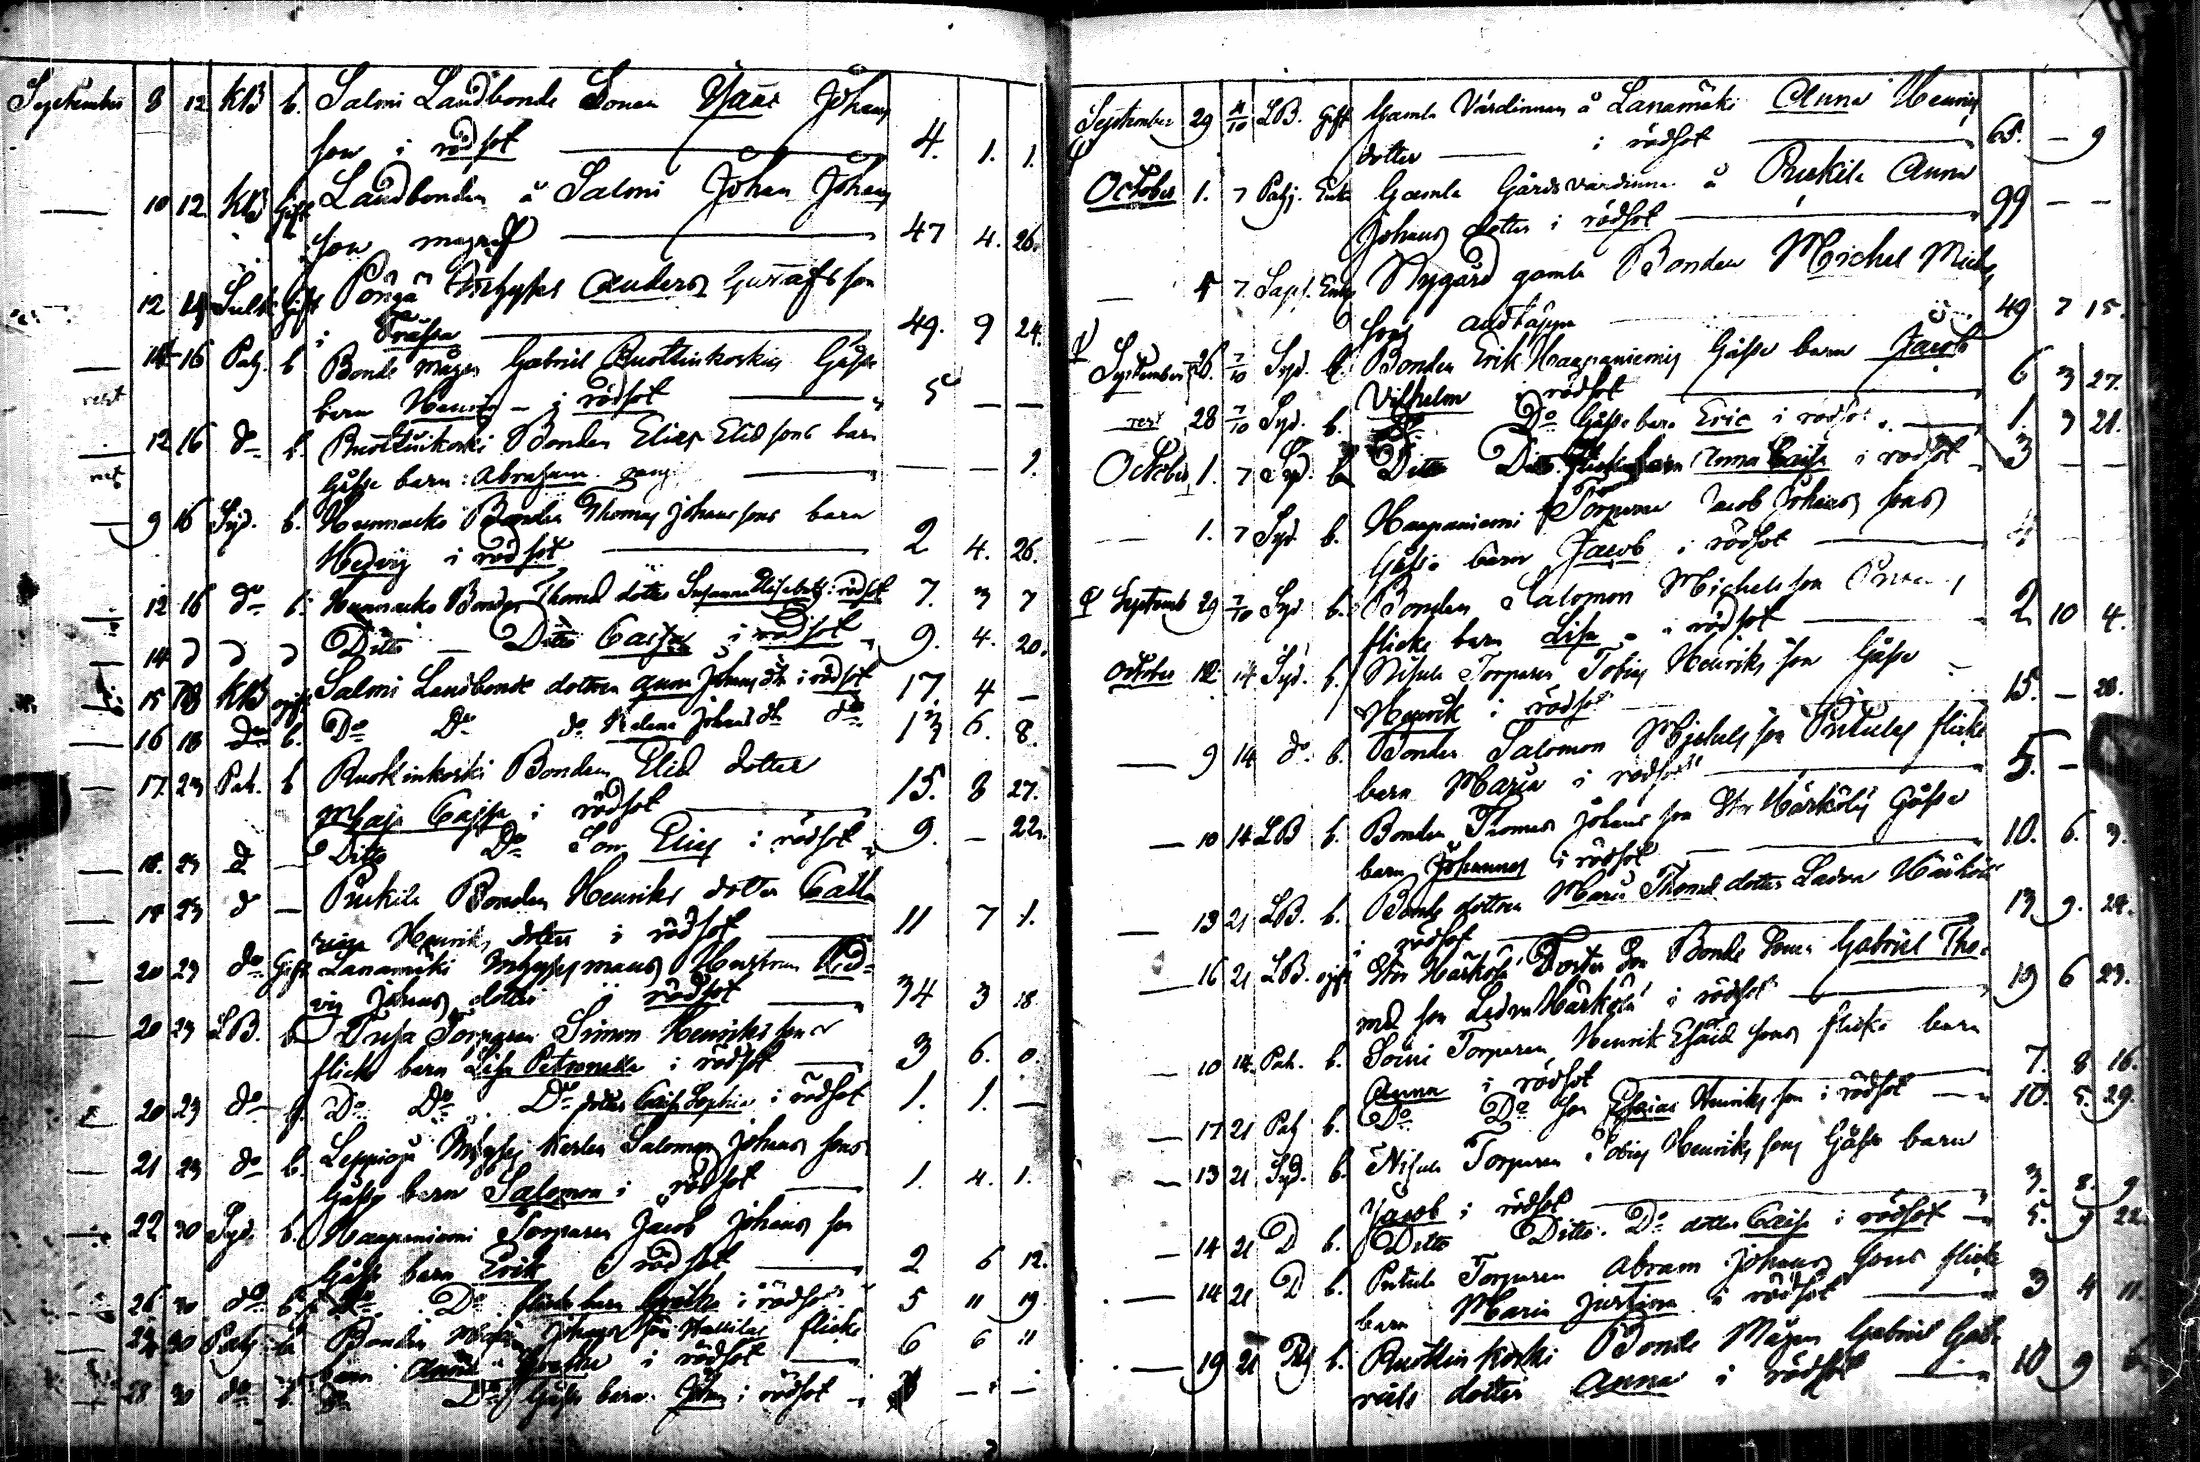 September 8 12 KB b. Salmi Landbonde Sonen Isaac Johans
son i rödsot 4. 1. 1.
10 12 KB Gift Landbonden å Salmi Johan Johans
son magref 47 4. 26.
12 Gift Anders Gustafsson
i 49. 9 24.
14 16 Palj. b Bonde Mågen Gabriel Ruottinkoskis Gåsse
barn Henric i rödsot 5 — —
12 16 do b. Ruottinkoski Bonden Elias Eliæsons barn
Gåsse barn Abraham — — 1.
9 16 Syd. b. Bonden Thomas Johanssons barn
Hedvig i rödsot 2 4. 26.
12 16 do b. Bonden Thomæ dotter Susanna Elisabeth i rödsot 7. 3 7
14 Ditto — Ditto Caisa i rödsot 9. 4. 20.
15 18 KB ogift Salmi Landbonde dottren Anna Johans dtr i rödsot 17. 4 —
16 18 do b. Do Do do Helena Johans dtr do 13 6. 8.
17 23 Pah. b Ruottinkoski Bonden Eliæ dotter
Maja Cajsa i rödsot 15. 8 27.
18. 23 d — Ditto Do Son Elias i rödsot 9. — 22.
18 23 d — Purkila Bonden Henriks dotter Catha
rina Henriks dotter i rödsot 11 7 1.
20 23 do Gift Lanamäki Inhysesmans Hustrun Hed=
vig Johans dotter i rödsot 34 3 18.
20 23 LB. b Torparen Simon Henriksson
flicke barn Lisa Petronella i rödsot 3 6. 0.
20 23 do b. Do Do Do dotter Caisa Sophia i rödsot 1. 1. —
21 23 do b. Inhyses Karlen Salomon Johans sons
Gåsse barn Salomon i rödsot 1. 4. 1.
22 30 Syd. b. Haapaniemi Torparen Jacob Johans son
Gåsse barn Erik i rödsot 2 6 12.
26 30 do b. Do Do flicke barn Greta i rödsot 5 11 19.
24 30 Palj b Bonden Johans son flicke
barn Anna Greta i rödsot 6 6 11
28 30 do b. Do Do Gåsse barn Johan i rödsot — —
September 29 4/10 LB. Gift Gamla Värdinnan å Lanamäki Anna Henrics
dotter — i rödsot 65. — 9
October 1. 7 Palj. Enka Gamla Gårdsvärdinna å Purkila Anna
Johans dotter i rödsot 99 — —
4 7. Nygård gamla Bonden Michel Michels
sons andtäppa 49 7 15.
September 26. 7/10 Syd. b. Bonden Erik Haapaniemis Gåsse barn Jacob
Vilhelm i rödsot 6 3 27.
28 7/10 Syd. b. Do Gåsse barn Eric i rödsot 1. 3 21.
October 1. 7 Syd. b Ditto Ditto flickebarn Anna Caisa i rödsot 3 — —
1. 7 Syd. b. Haapaniemi Torparen Jacob Johans sons
Gåsse barn Jacob i rödsot 4
Septemb 29 7/10 Syd b. Bonden Salomon Michelsson
flicke barn Lisa i rödsot 2 10 4.
October 12 14 Syd. b. Nisula Torparen Tobias Henriks son Gåsse
Henrik i rödsot 15. — 28.
9 14 do. b. Bonden Salomon Michelsson Pentulas flicke
barn Maria i rödsot 5. —
10 14 LB b. Bonden Thomas Johans son Stor Härkölä Gåsse
barn Johannes i rödsot 10. 6. 3.
13 21 LB. b. Bonde dottren Maria Thomæ dotter Ladva Härkölä
i rödsot 13 9. 24.
16 21 LB. ogift Stor Härkölä Bonde Sonen Gabriel Tho=
mæ son Ladva Härkölä i rödsot 19 6 23.
10 14. Pah. b. Soini Torparen Henrik Esaiæ sons flicke barn
Anna i rödsot 7. 8 16.
17 21 Palj b. Do Do son Esaias Henriks son i rödsot 10. 5. 29.
13 21 Syd. b. Nisula Torparen Tobias Henriks sons Gåsse barn
Jacob i rödsot 3. 8. 9
14 21 D b. Ditto Ditto Do dotter Caisa i rödsot 5. 9 22.
14 21 D b. Pentula Torparen Abram Johans sons flicke
barn Maria Justina i rödsot 3 4 11.
19 21 Palj b. Ruottinkoski Bonde Mågen Gabriel Gab=
riels dotter Anna i rödsot 10 9